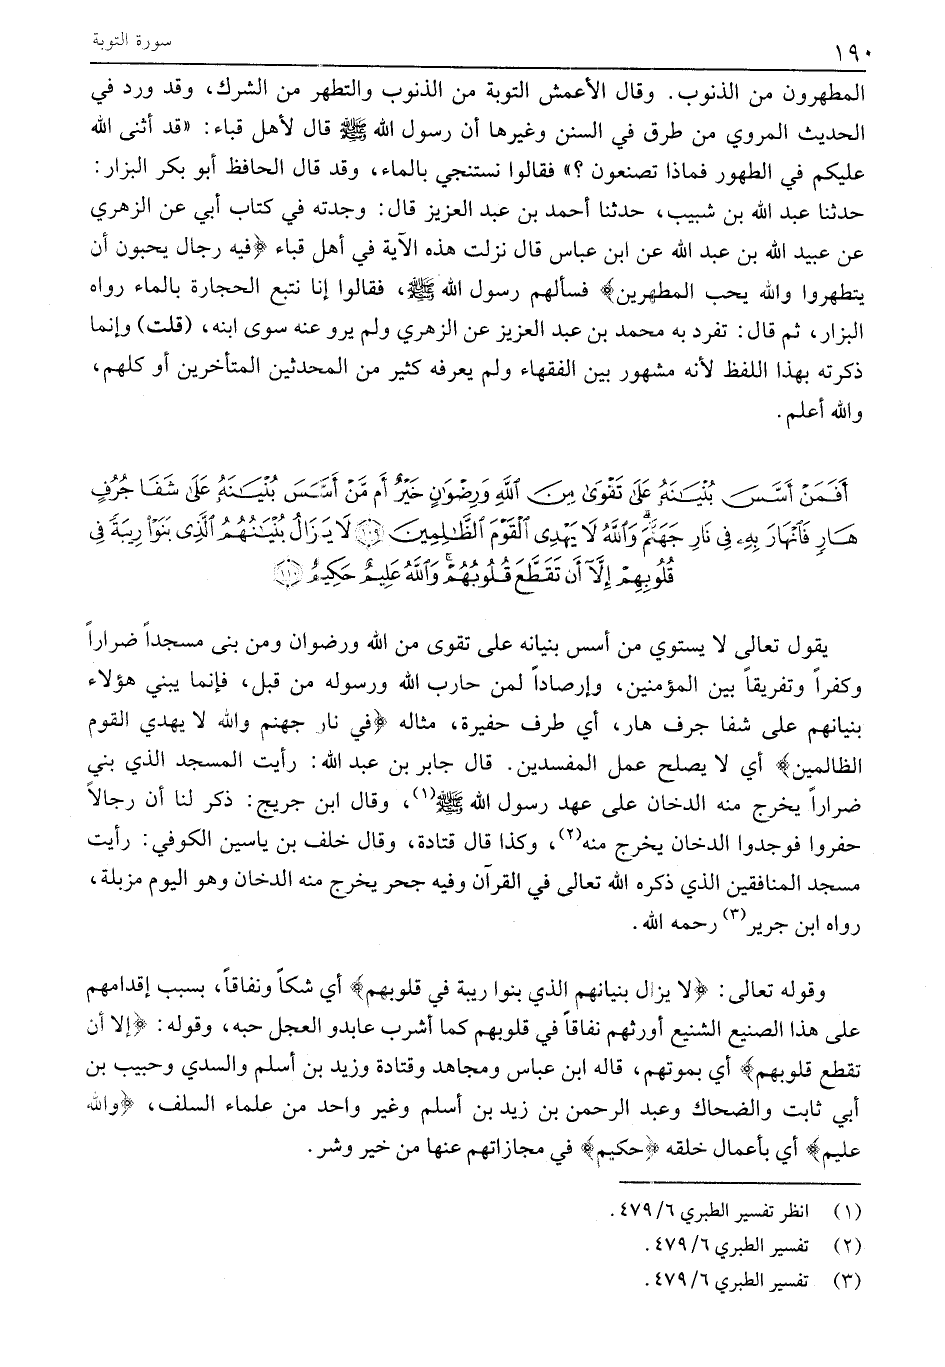 ١٩٠
سورة التوبة
المطهرون من الذنوب. وقال الأعمش التوبة من الذنوب والتطهر من الشرك، وقد ورد في
الحديث المروي من طرق في السنن وغيرها أن رسول الله ﷺ قال لأهل قباء: «قد أثنى الله
عليكم في الطهور فماذا تصنعون ؟» فقالوا نستنجي بالماء، وقد قال الحافظ أبو بكر البزار:
حدثنا عبد الله بن شبيب، حدثنا أحمد بن عبد العزيز قال: وجدته في كتاب أبي عن الزهري
عن عبيد الله بن عبد الله عن ابن عباس قال نزلت هذه الآية في أهل قباء ﴿فيه رجال يحبون أن
يتطهروا والله يحب المطهرين﴾ فسألهم رسول الله ﷺ، فقالوا إنا نتبع الحجارة بالماء رواه
البزار، ثم قال: تفرد به محمد بن عبد العزيز عن الزهري ولم يرو عنه سوى ابنه، (قلت) وإنما
ذكرته بهذا اللفظ لأنه مشهور بين الفقهاء ولم يعرفه كثير من المحدثين المتأخرين أو كلهم،
والله أعلم.
أَفَمَنْ أَسَّسَ بُنْيَـٰنَهُۥ عَلَىٰ تَقْوَىٰ مِنَ ٱللَّهِ وَرِضْوَٰنٍ خَيْرٌ أَم مَّنْ أَسَّسَ بُنْيَـٰنَهُۥ عَلَىٰ شَفَا جُرُفٍ
هَارٍ فَٱنْهَارَ بِهِۦ فِى نَارِ جَهَنَّمَ ۗ وَٱللَّهُ لَا يَهْدِى ٱلْقَوْمَ ٱلظَّـٰلِمِينَ ﴿١٠٩﴾ لَا يَزَالُ بُنْيَـٰنُهُمُ ٱلَّذِى بَنَوْا۟ رِيبَةً فِى
قُلُوبِهِمْ إِلَّآ أَن تَقَطَّعَ قُلُوبُهُمْ ۗ وَٱللَّهُ عَلِيمٌ حَكِيمٌ ﴿١١٠﴾
يقول تعالى لا يستوي من أسس بنيانه على تقوى من الله ورضوان ومن بنى مسجداً ضراراً
وكفراً وتفريقاً بين المؤمنين، وإرصاداً لمن حارب الله ورسوله من قبل، فإنما يبني هؤلاء
بنيانهم على شفا جرف هار، أي طرف حفيرة، مثاله ﴿في نار جهنم والله لا يهدي القوم
الظالمين﴾ أي لا يصلح عمل المفسدين. قال جابر بن عبد الله: رأيت المسجد الذي بني
ضراراً يخرج منه الدخان على عهد رسول الله ﷺ(١)، وقال ابن جريج: ذكر لنا أن رجالاً
حفروا فوجدوا الدخان يخرج منه(٢)، وكذا قال قتادة، وقال خلف بن ياسين الكوفي: رأيت
مسجد المنافقين الذي ذكره الله تعالى في القرآن وفيه جحر يخرج منه الدخان وهو اليوم مزبلة،
رواه ابن جرير(٣) رحمه الله.
وقوله تعالى: ﴿لا يزال بنيانهم الذي بنوا ريبة في قلوبهم﴾ أي شكاً ونفاقاً، بسبب إقدامهم
على هذا الصنيع الشنيع أورثهم نفاقاً في قلوبهم كما أشرب عابدو العجل حبه، وقوله: ﴿إلا أن
تقطع قلوبهم﴾ أي بموتهم، قاله ابن عباس ومجاهد وقتادة وزيد بن أسلم والسدي وحبيب بن
أبي ثابت والضحاك وعبد الرحمن بن زيد بن أسلم وغير واحد من علماء السلف، ﴿والله
عليم﴾ أي بأعمال خلقه ﴿حكيم﴾ في مجازاتهم عنها من خير وشر.
(١) انظر تفسير الطبري ٤٧٩/٦.
(٢) تفسير الطبري ٤٧٩/٦.
(٣) تفسير الطبري ٤٧٩/٦.